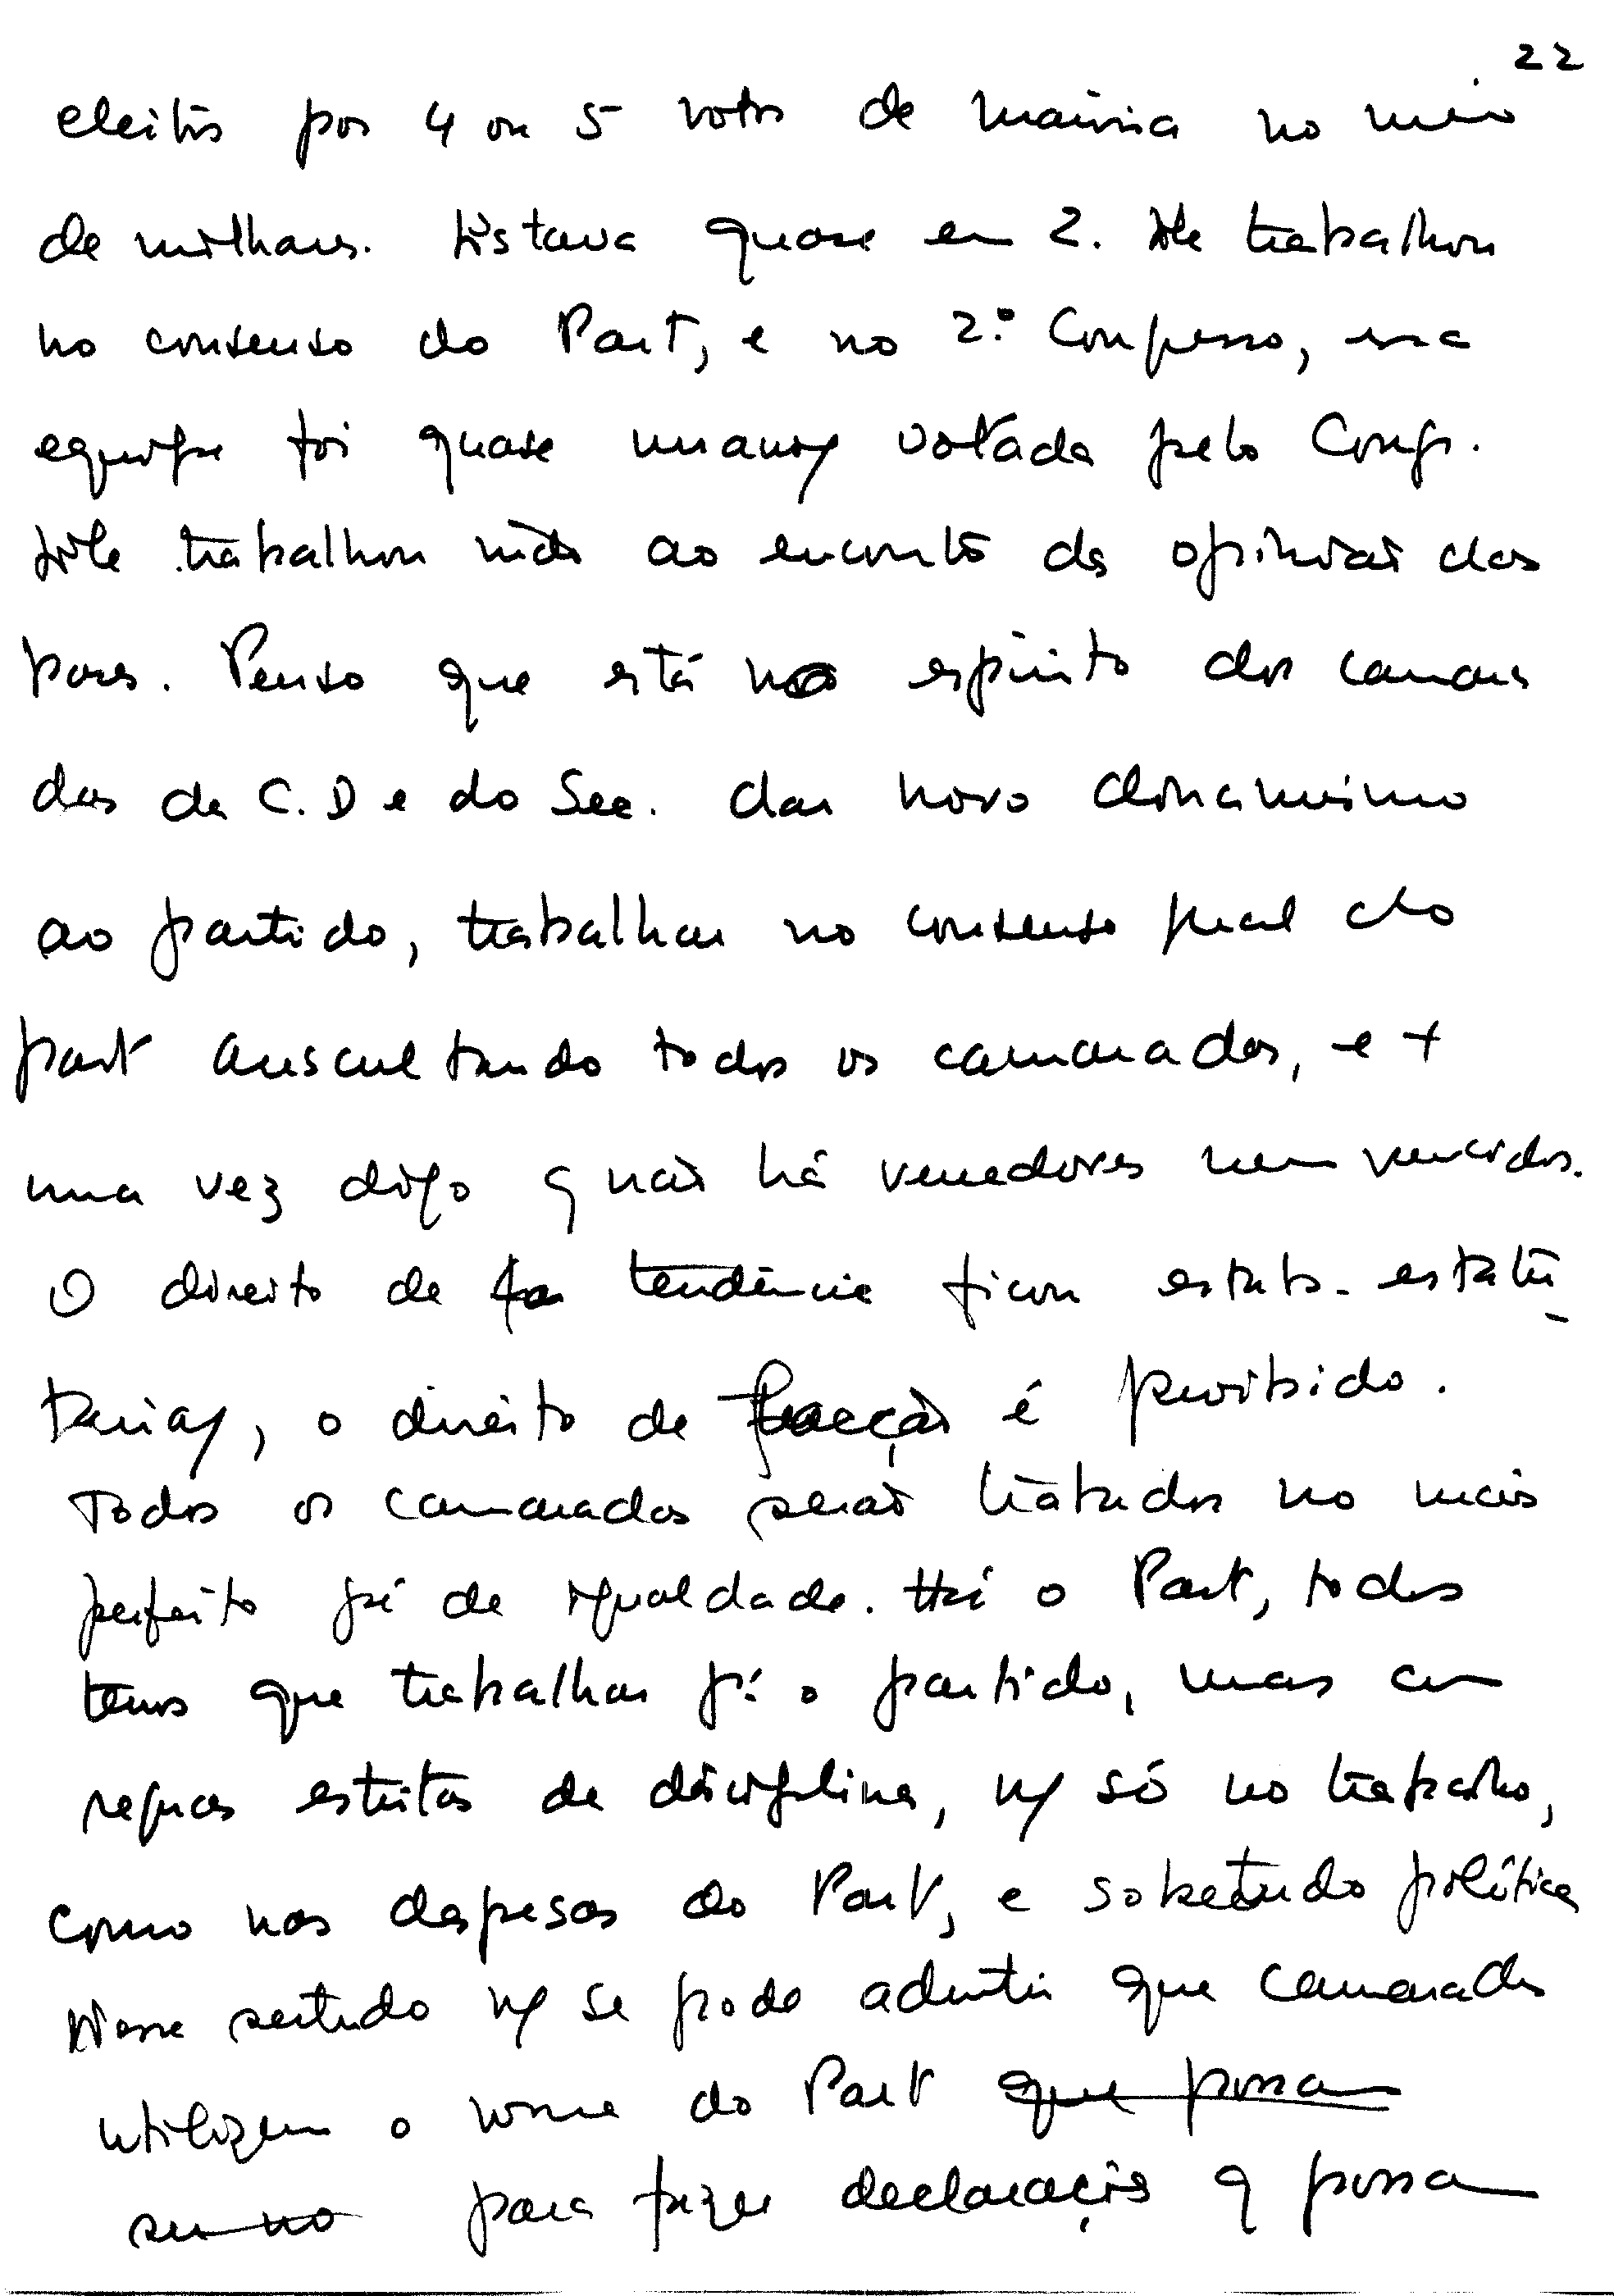 22
eleitos por 4 ou 5 votos de maioria no meio
de milhares. Estava quase em 2. Ele trabalhou
no consenso do Part, e no 2.º Congresso, essa
equipe foi quase unanim/ votada pelo Congr.
Ele trabalhou indo ao encontro da opinião das
pares. Penso que está no espírito dos camara
das da C. D e do Sec. dar novo dinamismo
ao partido, trabalhar no consenso geral do
part auscultando todos os camaradas, e +
uma vez digo q não há vencedores nem vencidos.
O direito de tendência ficou estatu-
tariam/, o direito de fracção é proibido.
Todos os camaradas serão tratados no mais
perfeito pé de igualdade. Há o Part, todos
temos que trabalhar p.ª o partido, mas com
regras estritas de disciplina, ñ só no trabalho,
como nas despesas do Part, e sobretudo política
Nesse sentido ñ se pode admitir que camaradas
utilizem o nome do Part que possam
seu no para fazer declarações q possam